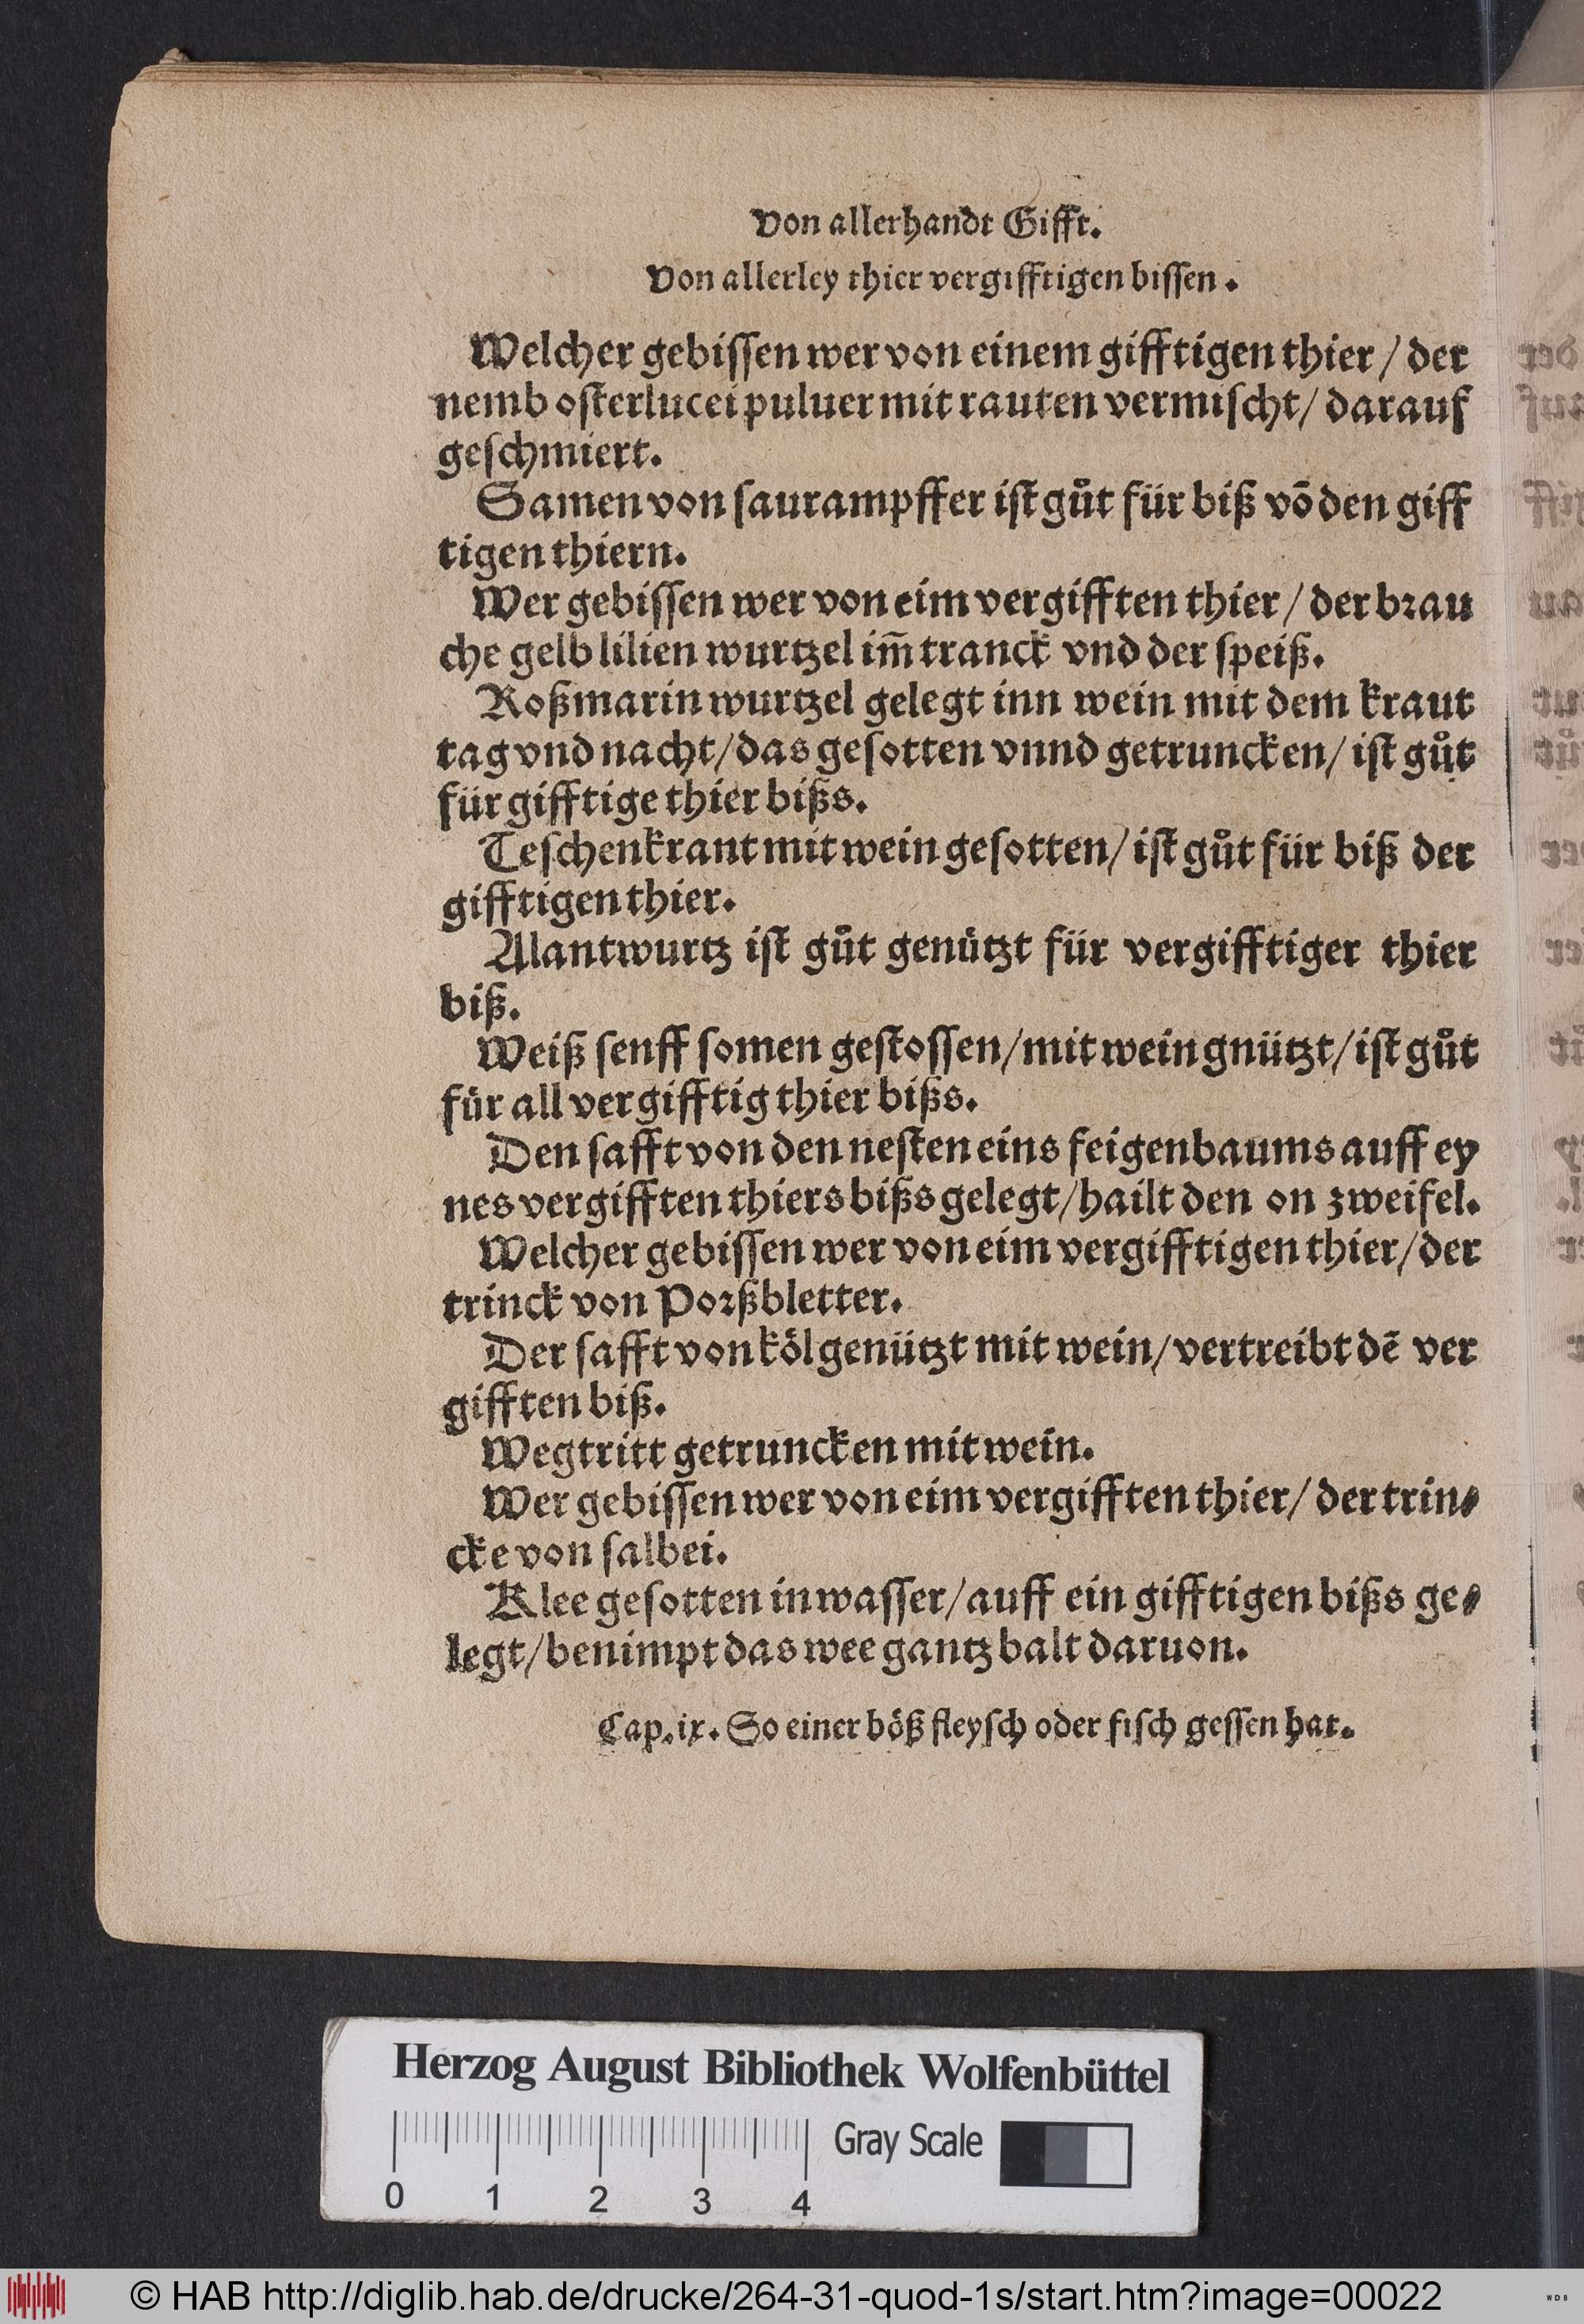 Von allerhandt Gifft.
Von allerley thier vergifftigen bissen.
Welcher gebiſſen wer von einem gifftigen thier / der
nemb oſterlucei puluer mit rauten vermiſcht / darauf
geſchmiert.
Samen von ſaurampffer iſt gůt für biß võ den giff
tigen thiern.
Wer gebiſſen wer von eim vergifften thier / der brau
che gelb lilien wurtzel im̄ tranck vnd der ſpeiß.
Roßmarin wurtzel gelegt inn wein mit dem kraut
tag vnd nacht / das geſotten vnnd getruncken / iſt gůt
für gifftige thier bißs.
Teſchenkrant mit wein geſotten / iſt gůt für biß der
gifftigen thier.
Alantwurtz iſt gůt genützt für vergifftiger thier
biß.
Weiß ſenff ſomen geſtoſſen / mit wein gnützt / iſt gůt
für all vergifftig thier bißs.
Den ſafft von den neſten eins feigenbaums auff ey
nes vergifften thiers bißs gelegt / hailt den on zweifel.
Welcher gebiſſen wer von eim vergifftigen thier / der
trinck von Porßbletter.
Der ſafft von köl genützt mit wein / vertreibt dē ver
gifften biß.
Wegtritt getruncken mit wein.
Wer gebiſſen wer von eim vergifften thier / der trin⸗
cke von ſalbei.
Klee geſotten in waſſer / auff ein gifftigen bißs ge⸗
legt / benimpt das wee gantz balt daruon.
Cap. ix. So einer böß fleyſch oder fiſch geſſen hat.
Herzog August Bibliothek Wolfenbüttel
Gray Scale
0 1 2 3 4
© HAB http://diglib.hab.de/drucke/264-31-quod-1s/start.htm?image=00022
WDB